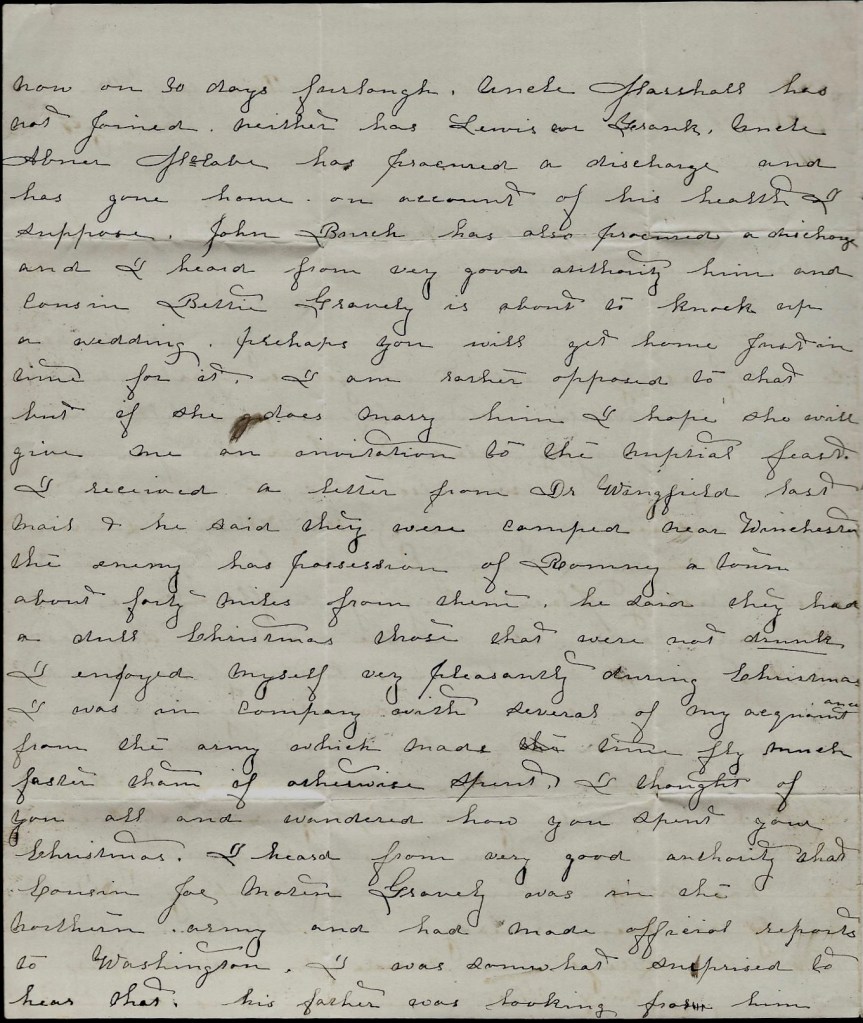 now on 30 days furlough. Uncle Marshall has
not Joined. neither has Lewis or Frank. Uncle
Abner McCabe has procured a discharge and
has gone home on account of his health I
suppose. John Burch has also procured a discharge
and I heard from very good authority him and
Cousin Bettie Gravely is about to knock up
a wedding. perhaps you will get home Just in
time for it. I am rather opposed to that
but if she does marry him I hope she will
give me an invitation to the nuptial feast.
I received a letter from Dr Wingfield last
mail & he said they were camped near Winchester
the enemy has possession of Romney a town
about forty miles from them. he said they had
a dull Christmas those that were not drunk
I enjoyed myself very pleasantly during Christmas
I was in company with several of my acquaintance
from the army which made the time fly much
faster than if otherwise spent. I thought of
you all and wondered how you spent your
Christmas. I heard from very good authority that
Cousin Joe Gravely was in the
northern army and had made official reports
to Washington. I was somwhat surprised to
hear that. his father was looking for him